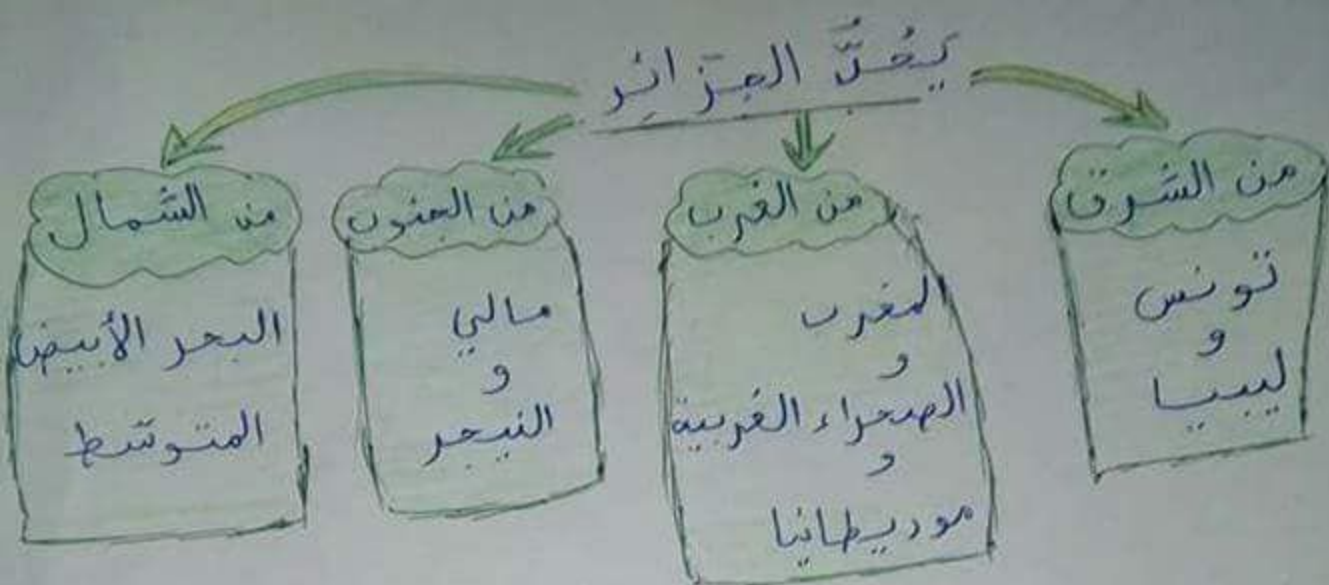 يَحُدُّ الجزائر
من الشرق
تونس
و
ليبيا
من الغرب
المغرب
و
الصحراء الغربية
و
موريطانيا
من الجنوب
مالي
و
النيجر
من الشمال
البحر الأبيض
المتوسّط